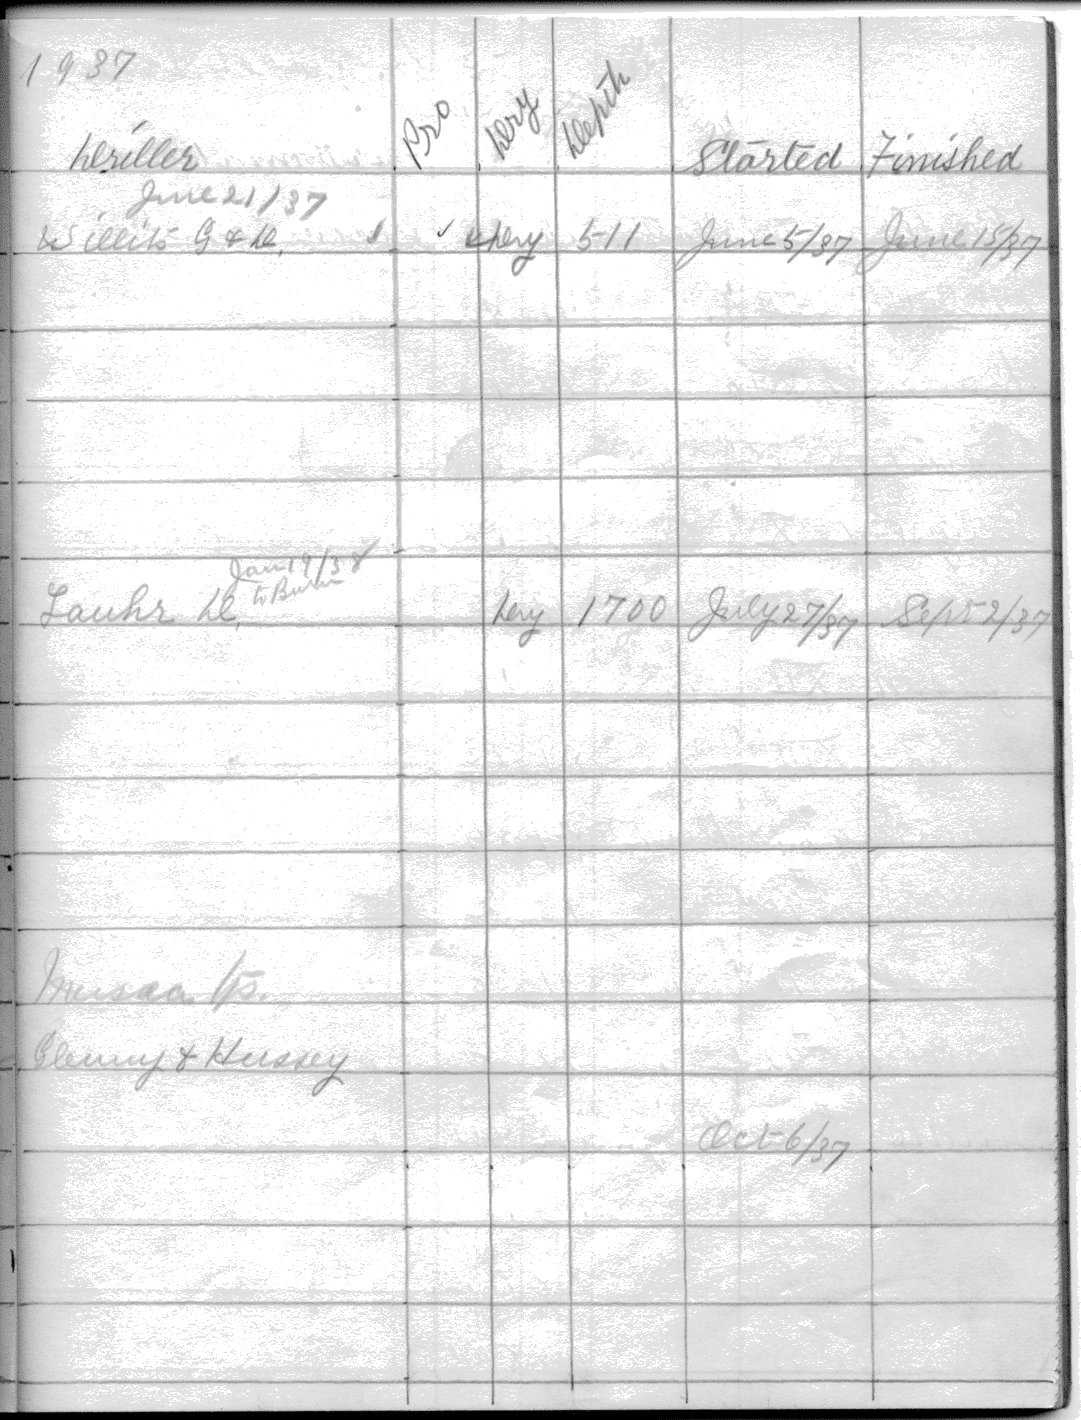 1937
Driller Pro Dry Depth Started Finished
June 21/37
Willits G & D. ✓ Dry 511 June 5/37 June 15/37
Jan 19/38
to
Lauhr D. Dry 1700 July 27/37 Sept 2/37
& Hussey
Oct 6/37